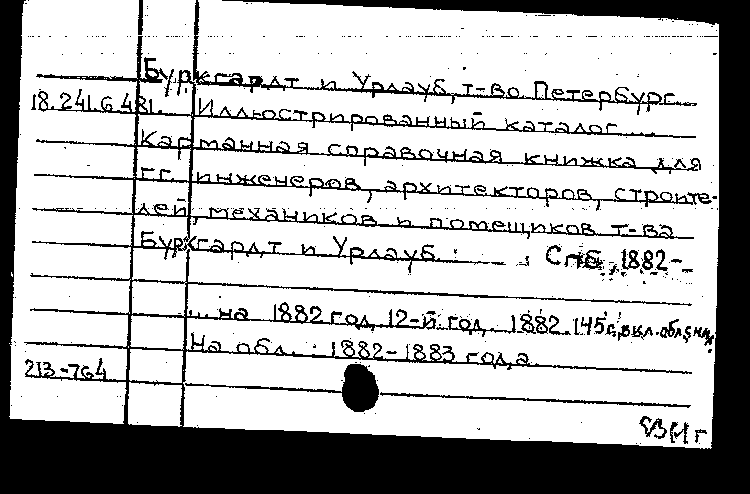 Буркгардт и Урлауб, т-во. Петербург.
18.241.6.481. Иллюстрированный каталог ....
Карманная справочная книжка для
гг. инженеров, архитекторов, строите-
лей, механиков и помещиков т-ва
Буркгардт и Урлауб. : Спб, 1882-
... на 1882 год, 12-й год. 1882. 145 с., вкл. обл.
На обл.: 1882-1883 года.
213-764